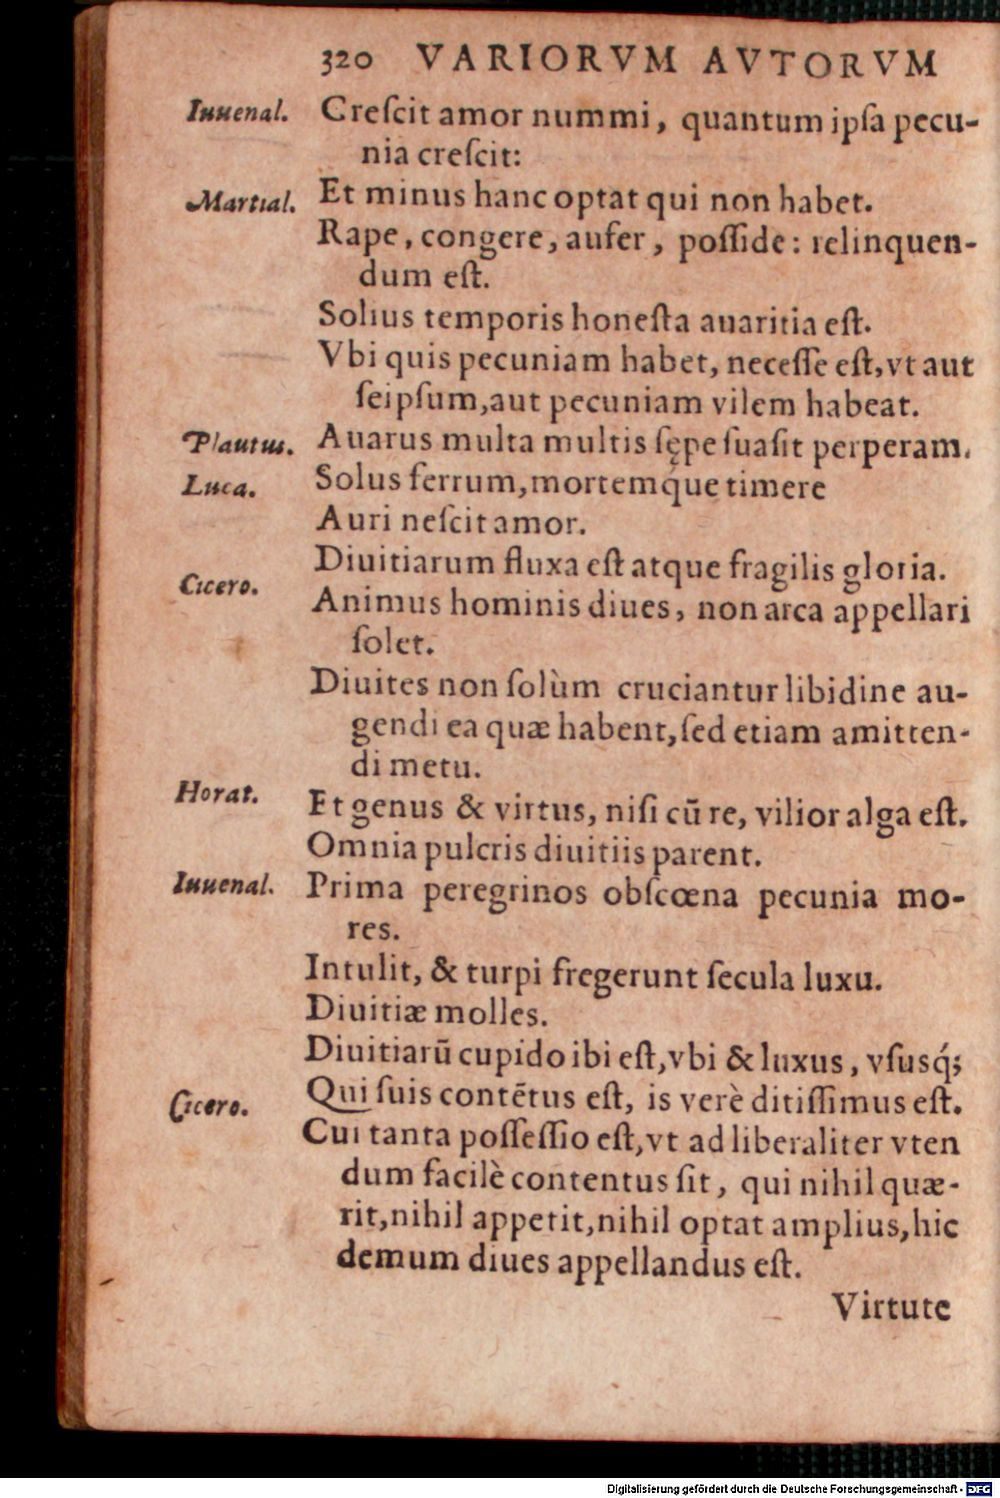 320 VARIORVM AVTORVM
Iuuenal. Creſcit amor nummi, quantum ipſa pecu-
nia creſcit:
Martial. Et minus hanc optat qui non habet.
Rape, congere, aufer, poſſide: relinquen-
dum eſt.
Solius temporis honeſta auaritia eſt.
Vbi quis pecuniam habet, neceſſe eſt, vt aut
ſeipſum, aut pecuniam vilem habeat.
Plautus. Auarus multa multis ſępe ſuaſit perperam.
Luca. Solus ferrum, mortemq́ue timere
Auri neſcit amor.
Diuitiarum fluxa eſt atque fragilis gloria.
Cicero. Animus hominis diues, non arca appellari
ſolet.
Diuites non ſolùm cruciantur libidine au-
gendi ea quæ habent, ſed etiam amitten-
di metu.
Horat. Et genus & virtus, niſi cū re, vilior alga eſt.
Omnia pulcris diuitiis parent.
Iuuenal. Prima peregrinos obſcœna pecunia mo-
res.
Intulit, & turpi fregerunt ſecula luxu.
Diuitiæ molles.
Diuitiarū cupido ibi eſt, vbi & luxus, vſusq́;
Cicero. Qui ſuis contētus eſt, is verè ditiſſimus eſt.
Cui tanta poſſeſſio eſt, vt ad liberaliter vten
dum facilè contentus ſit, qui nihil quæ-
rit, nihil appetit, nihil optat amplius, hic
demum diues appellandus eſt.
Virtute
Digitalisierung gefördert durch die Deutsche Forschungsgemeinschaft - DFG